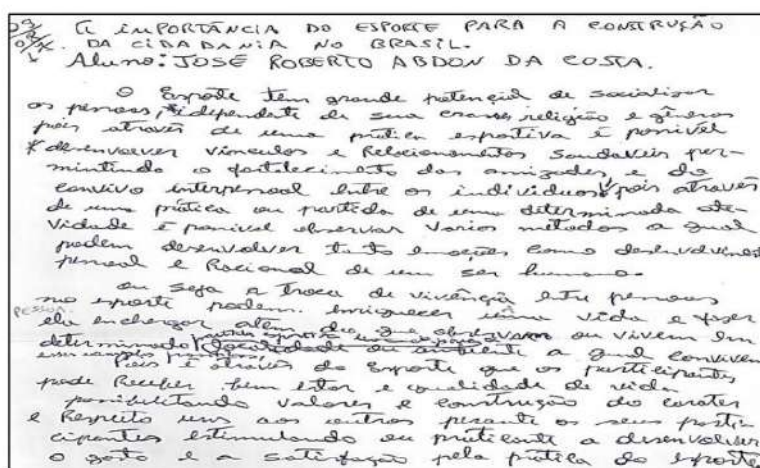 A IMPORTÂNCIA DO ESPORTE PARA A CONSTRUÇÃO
DA CIDADANIA NO BRASIL.
Aluno: JOSÉ ROBERTO ABDON DA COSTA.
O Esporte tem grande potencial de socializar
as pessoas, idependente de sua crasse, religião e gêneros
pois através de uma prática esportiva é possivel
* desenvolver vinculos e Relacionamentos Saudaveis per-
mintindo o fortalecimento das amizades, e do
convivo interpessoal entre os individuos, pois através
de uma prática ou partida de uma determinada ati-
vidade é possivel observar varios métodos a qual
podem desenvolver tanto emoções como desenvolvimento
pessoal e Racional de um ser humano.
ou seja a troca de vivência entre pessoas
no esporte podem enriquecer uma vida e fazer
PESSOA.
ela enchergar além do que observavam ou vivem em
determinado localidade ou ambiente a qual convivem
Pois é através do Esporte que os participantes
pode Receber bem estar e qualidade de vida
possibilitando valores e construção do carater
e Respeito uns aos outros perante os seus parti-
cipantes estimulando ou praticante a desenvolver
o gosto e a satisfação pela prática do esporte